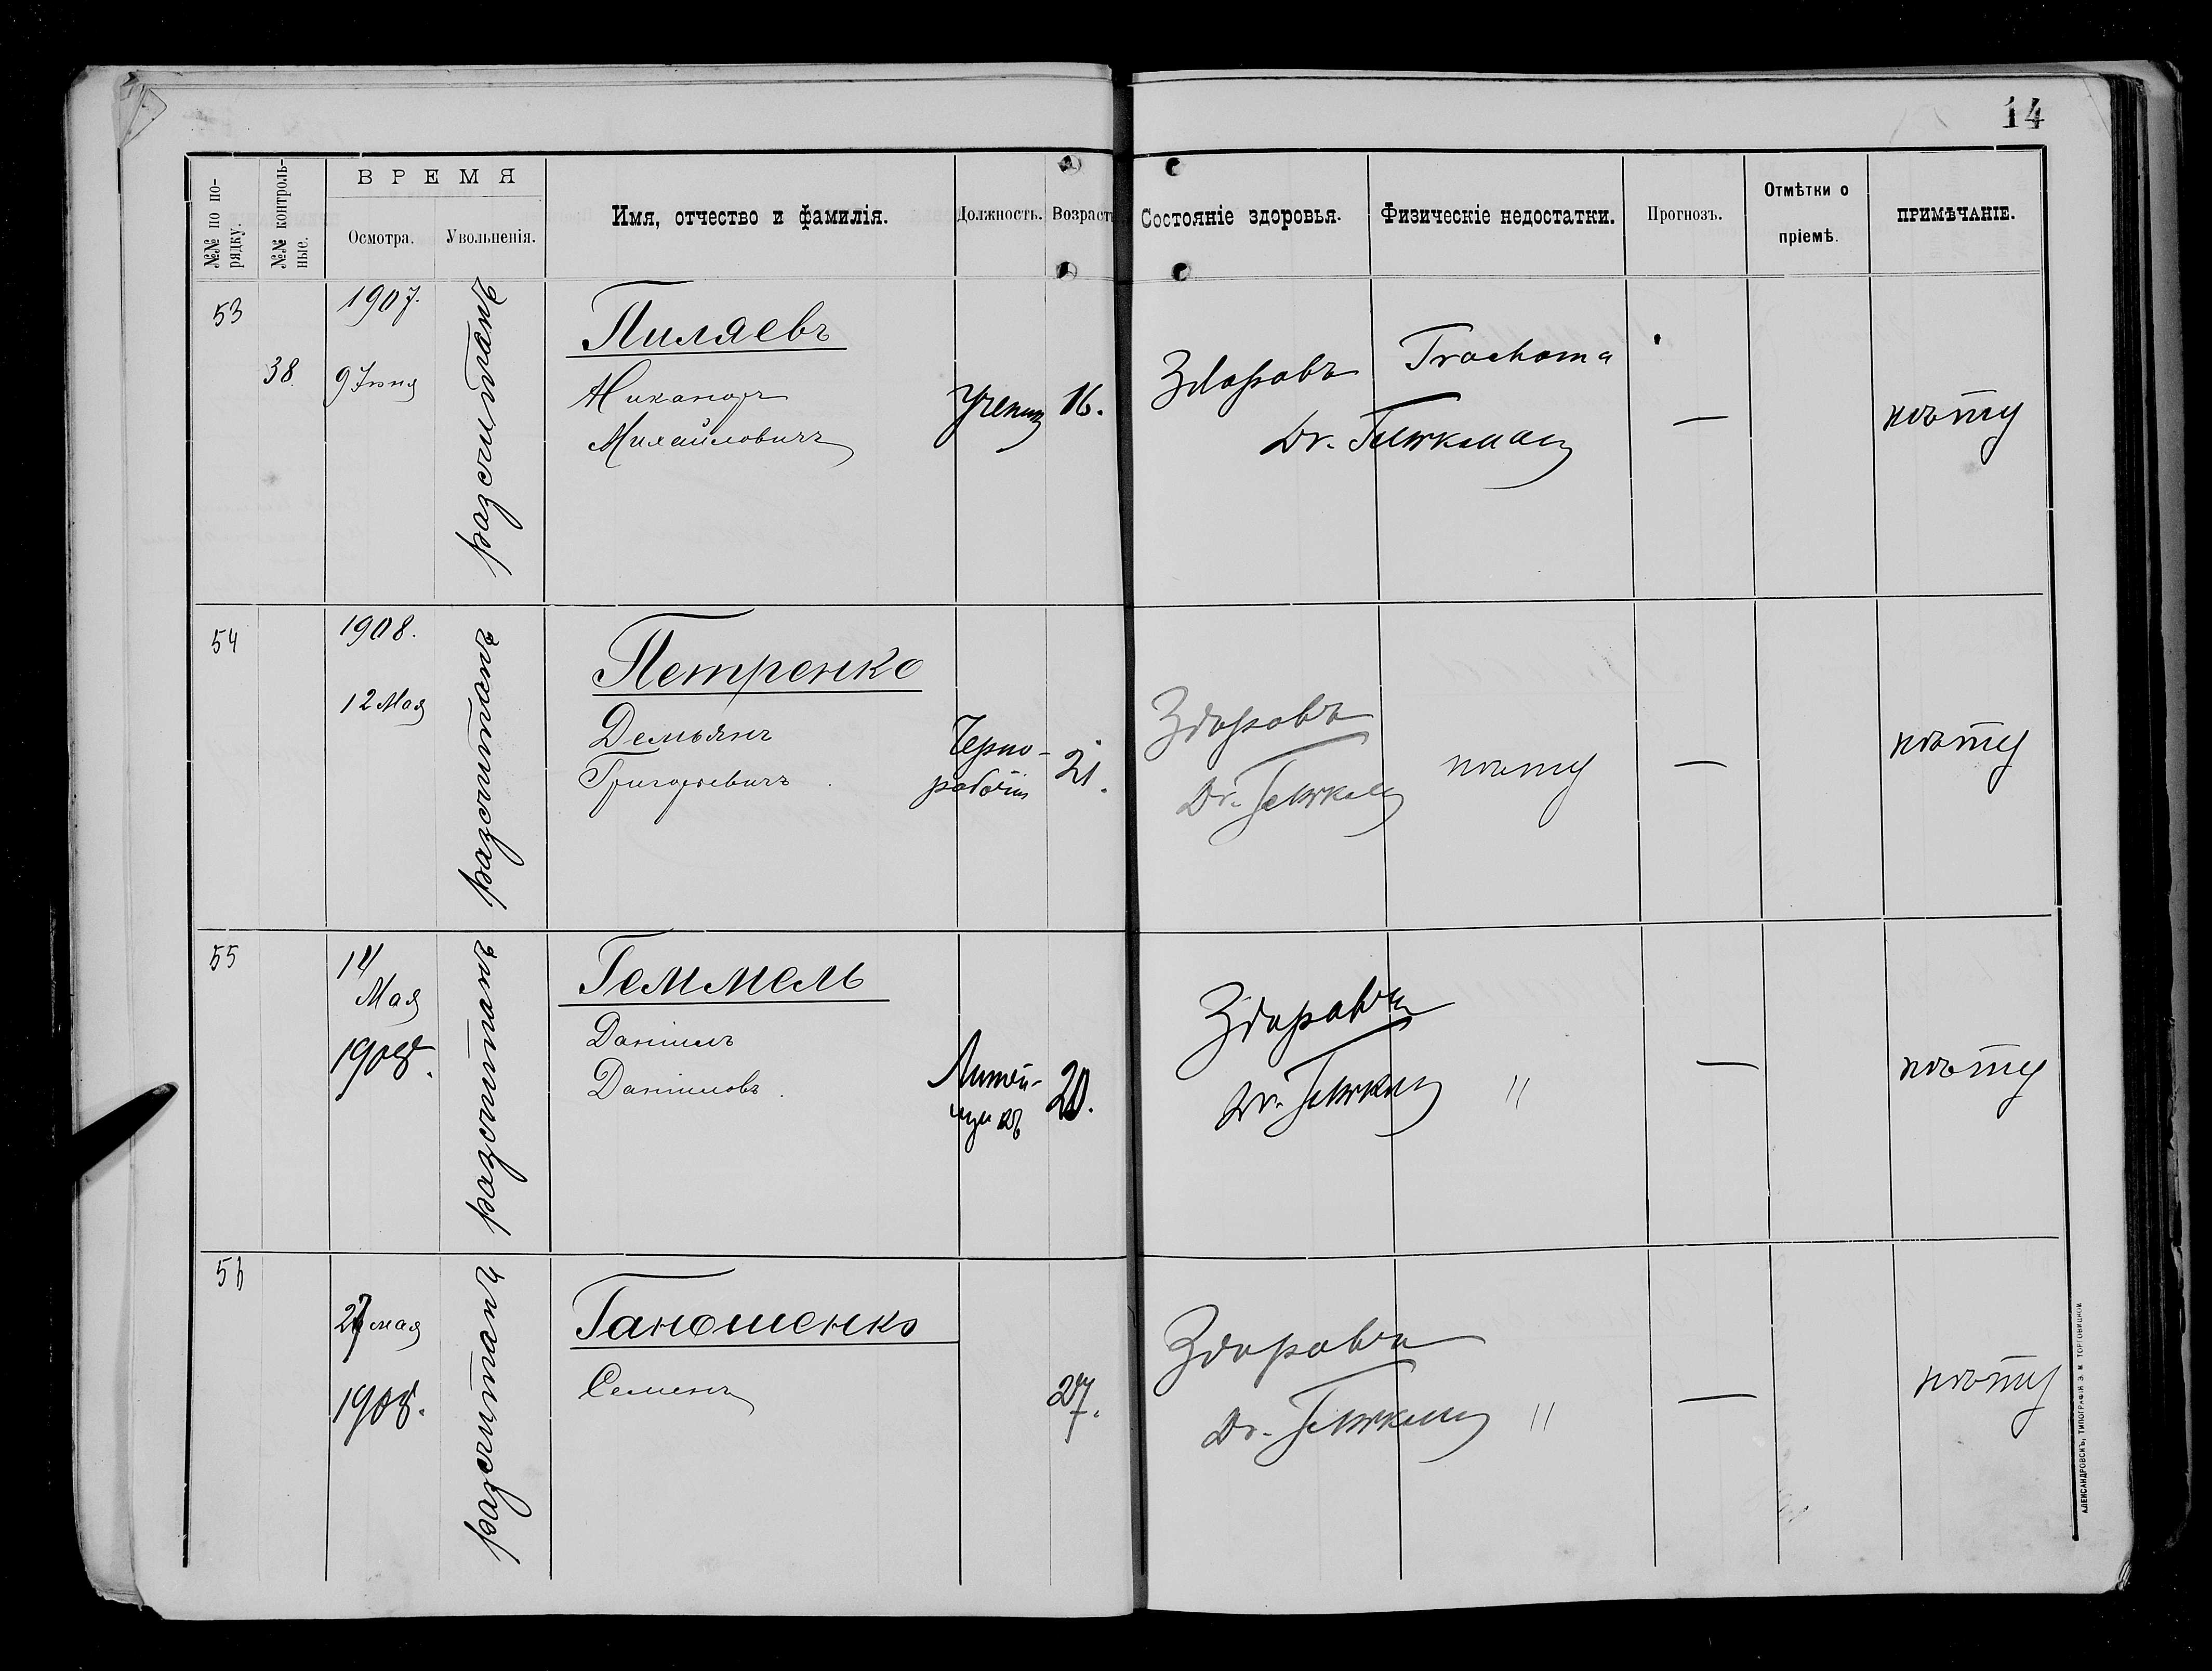 14
№№ по по-
рядку.
№№ контроль-
ные.
ВРЕМЯ
Осмотра.
Увольненія.
Имя, отчество и фамилія.
Должность.
Возрастъ
Состояніе здоровья.
Физическіе недостатки.
Прогнозъ.
Отмѣтки о
пріемѣ.
ПРИМѢЧАНІЕ.
53
38.
1907.
9 Іюня
разсчитанъ
Пиляевъ
Никаноръ
Михайловичъ
Ученик
16.
Здоровъ
Trachoma
Dr.
—
нѣту
54
1908.
12 Мая
разсчитанъ
Петренко
Демьянъ
Григорьевичъ
Черно-
рабочій
21.
Здоровъ
Dr.
нѣту
—
нѣту
55
14
Мая
1908.
разсчитанъ
Геммель
Даніилъ
Даниловъ.
Литей-
щикъ
20.
Здоровъ
Dr.
"
—
нѣту
56
27 мая
1908.
разсчитанъ
Ганошенко
Семенъ
27.
Здоровъ
Dr.
"
—
нѣту
АЛЕКСАНДРОВСКЪ, ТИПОГРАФІЯ Э. М. ТОРГОВИЦКОЙ